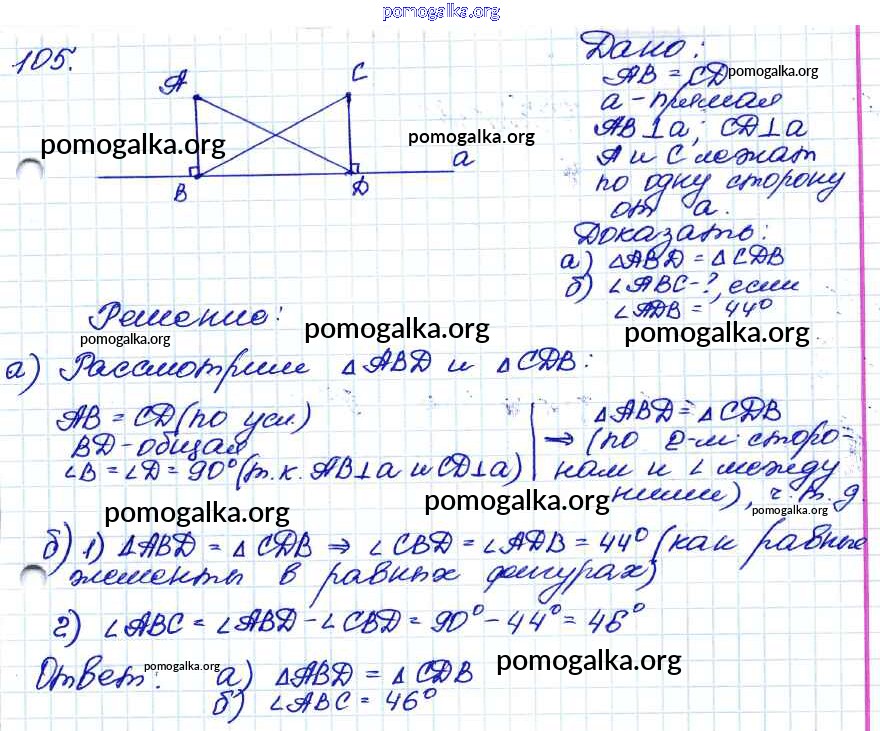 pomogalka.org
105.
Дано:
A
C
AB = CD
pomogalka.org
a - прямая
pomogalka.org
pomogalka.org
AB⊥a; CD⊥a
a
A и C лежат
B
D
по одну сторону
от a.
Доказать:
а) △ABD = △CDB
б) ∠ABC-?, если
∠ADB = 44°
Решение:
pomogalka.org
pomogalka.org
pomogalka.org
а) Рассмотрим △ABD и △CDB:
AB = CD (по усл.)
BD - общая
∠B = ∠D = 90° (т.к. AB⊥a и CD⊥a)
△ABD = △CDB
⇒ (по 2-м сторо-
нам и ∠ между
ними), ч.т.д.
pomogalka.org
pomogalka.org
pomogalka.org
б) 1) △ABD = △CDB ⇒ ∠CBD = ∠ADB = 44° (как равные
элементы в равных фигурах)
2) ∠ABC = ∠ABD - ∠CBD = 90° - 44° = 46°
Ответ:
pomogalka.org
pomogalka.org
а) △ABD = △CDB
б) ∠ABC = 46°